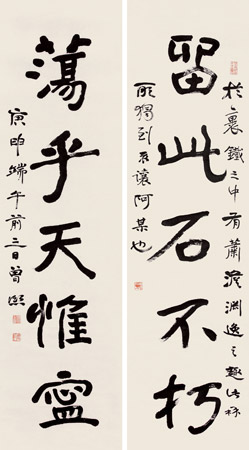 於裹鐵之中有蕭淡淵逸之趣此祕
留此石不朽
所獨到不讓阿某也
蕩乎天惟寍
庚申端午前三日曾熙